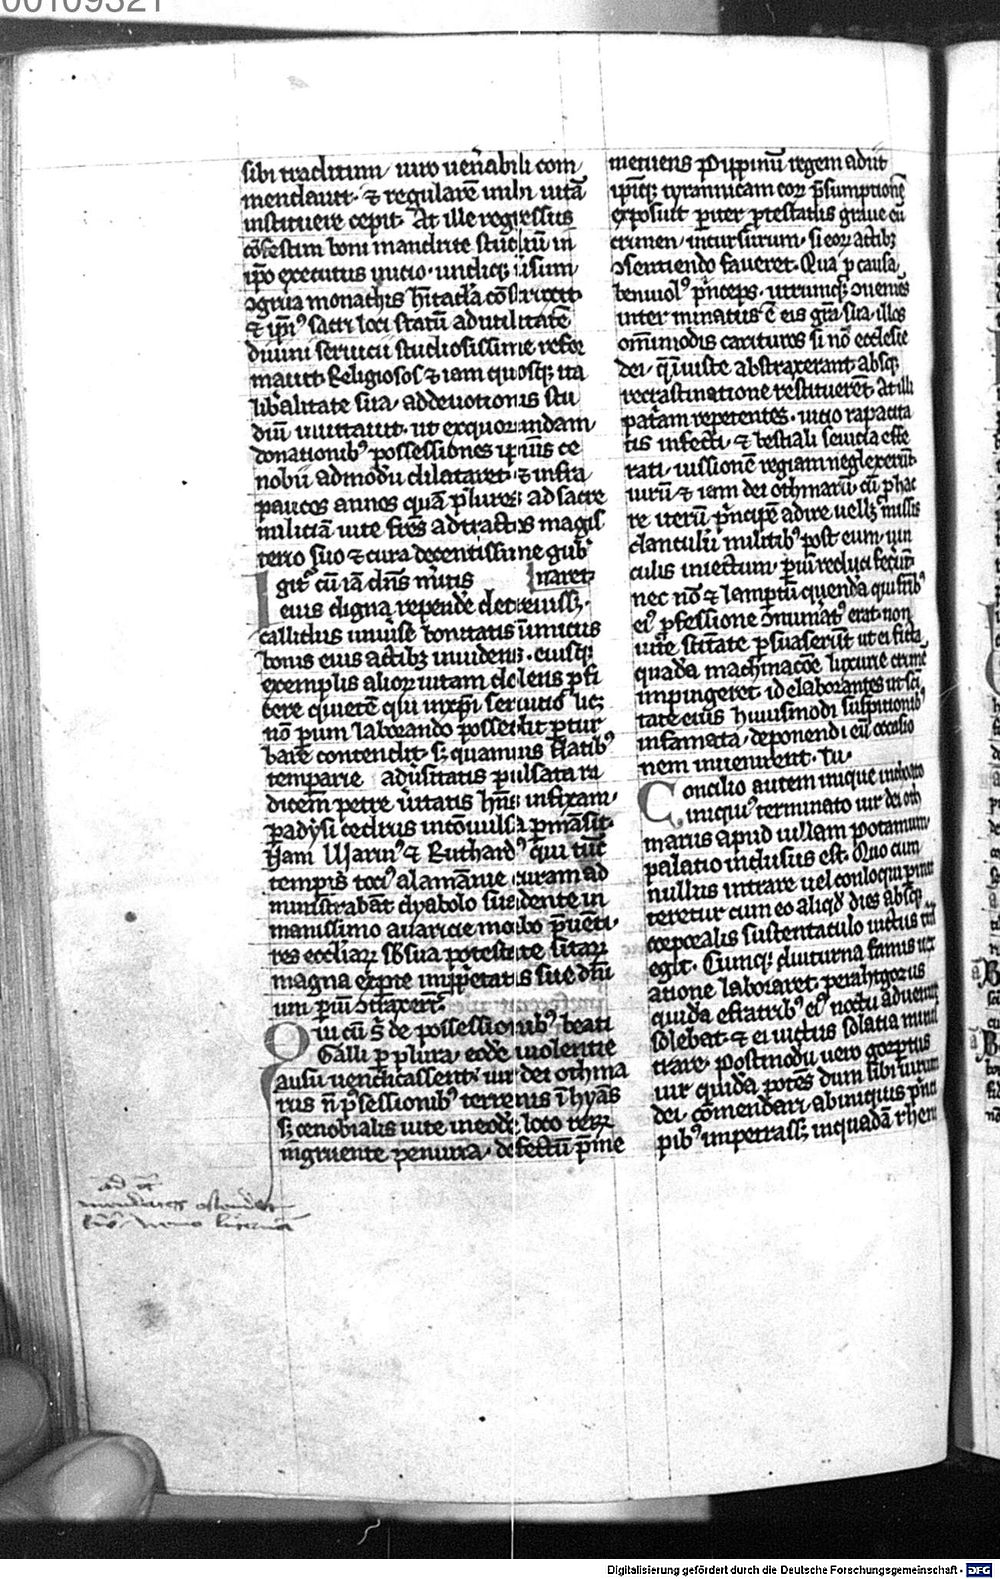 00109321
sibi traditum uiro uen̄abili com
mendauit · ⁊ regularē inibi uitā
instituere cepit · At ille regressus
cōfestim boni mandrite studiū in
ip̄o executus inicio · undiq; usum
ꝯgrua monachis h̄itac̄la cōstruxit
⁊ ip̄iꝰ sacri loci statū ad utilitatē
diuini seruicii studiosissime refor
mauit Religiosos ⁊ iam quosq; ita
lib̄alitate sua · ad deuotionis stu
diū inuitauit · ut ex quoꝝundam
donationibꝰ possessiones ip̄ius ce
nobii admodū dilataret · ⁊ infra
paucos annos quā pl̄ures ad sacre
miliciā uite fr̄es adtractos magis
terio suo ⁊ cura decentissime gub̄
Igit̄ cū iā dn̄s m̄itis naret
eius digna repende decreuiss;
callidus uniūse bonitatis inimicus
bonis eius actibꝫ inuidens · eiusq;
exemplis alioꝝ uitam dolens ꝓfi
cere quietē qui in xp̄i seruitio lic;
nō ꝑum laborando possedit ꝑtur
bare contendit · s; quamuis flatibꝰ
temparie aduersitatis pulsata ra
dicem petre ūitatis hn̄s infixam ·
padysi cedrus incōuulsa ꝑmāsit ·
Nam Warinꝰ ⁊ Ruthardꝰ qui tūc
tempis tociꝰ alamānie curam ad
ministrabāt dyabolo suadente in
manissimo auaricie morbo p̄uēti ·
res eccl̄iaꝝ sb̄ sua potestate sitaꝝ
magna ex parte in ꝓp̄etatis sue dn̄i
um ꝑim ꝯtraxer̄t ·
Qui cū ⁊ de possessionibꝰ beati
Galli ꝑ plura · eodē uiolentie
ausu uendicassent · uir dei othma
rus n̄ possessionibꝰ terrenis īhyās
s; cenobialis uite in eodē loco reꝝ
īgruente penuria · defectū p̄me
metuens Pippinū regem adiit
ip̄iq; tyrannicam eoꝝ p̄sumptionē
exposuit pariter ꝓtestatus graue eū
crimen incursurum · si eoꝝ actibꝫ
ꝯsentiendo faueret · Qua ꝓ causa
beniuolꝰ p̄nceps · utrumq; ꝯuenies
inter minatus ē eis gr̄a sua illos
om̄imodis carituros si nō ecclesie
dei · q̄ iniuste abstraxerant absq;
recrastinatione restituerēt · At illi
patriam repetentes · uicio rapacita
tis infecti · ⁊ bestiali seuicia effe
rati · iussionē regiam neglexerūt ·
uirū ⁊ iam dei othmarū cū ꝓ hac
re iterū p̄ncipē adire uellꝫ missis
clanculū militibꝰ post eum · uin
culis iniectum · ꝑ uim reduci fecerūt
nec nō ⁊ lamptū quendā qui fr̄ibꝰ
eiꝰ ꝓfessione ꝯmunatꝰ erat · non
uite sc̄itate ꝑsuaserūt ut ei ficta
quada machinacōe luxurie crimē
impingeret · id elaborantes ut sc̄i
tate eius huiusmodi suspitionibꝰ
infamata · deponendi eū occasio
nem inuenirent · tu ·
Concilio autem inique inchoato
iniquiꝰ terminato uir dei oth
marus apud uillam potamum
palatio inclusus est · Quo cum
nullus intrare uel conloqui ꝑmit
teretur cum eo aliq̄d dies absq;
corporalis sustentaculo uictus
egit · Cumq; diuturna famis uex
atione laboraret · perahtgozus
quida ex fratribꝰ eiꝰ noctu aduenire
solebat · ⁊ ei uictus solatia minis
trare · Postmodū uero gozpertus
uir quida potēs dum sibi uirum
dei · cōmendari ab iniquis prīci
pibꝰ impetrass; in quadā rheni
ad
Digitalisierung gefördert durch die Deutsche Forschungsgemeinschaft - DFG